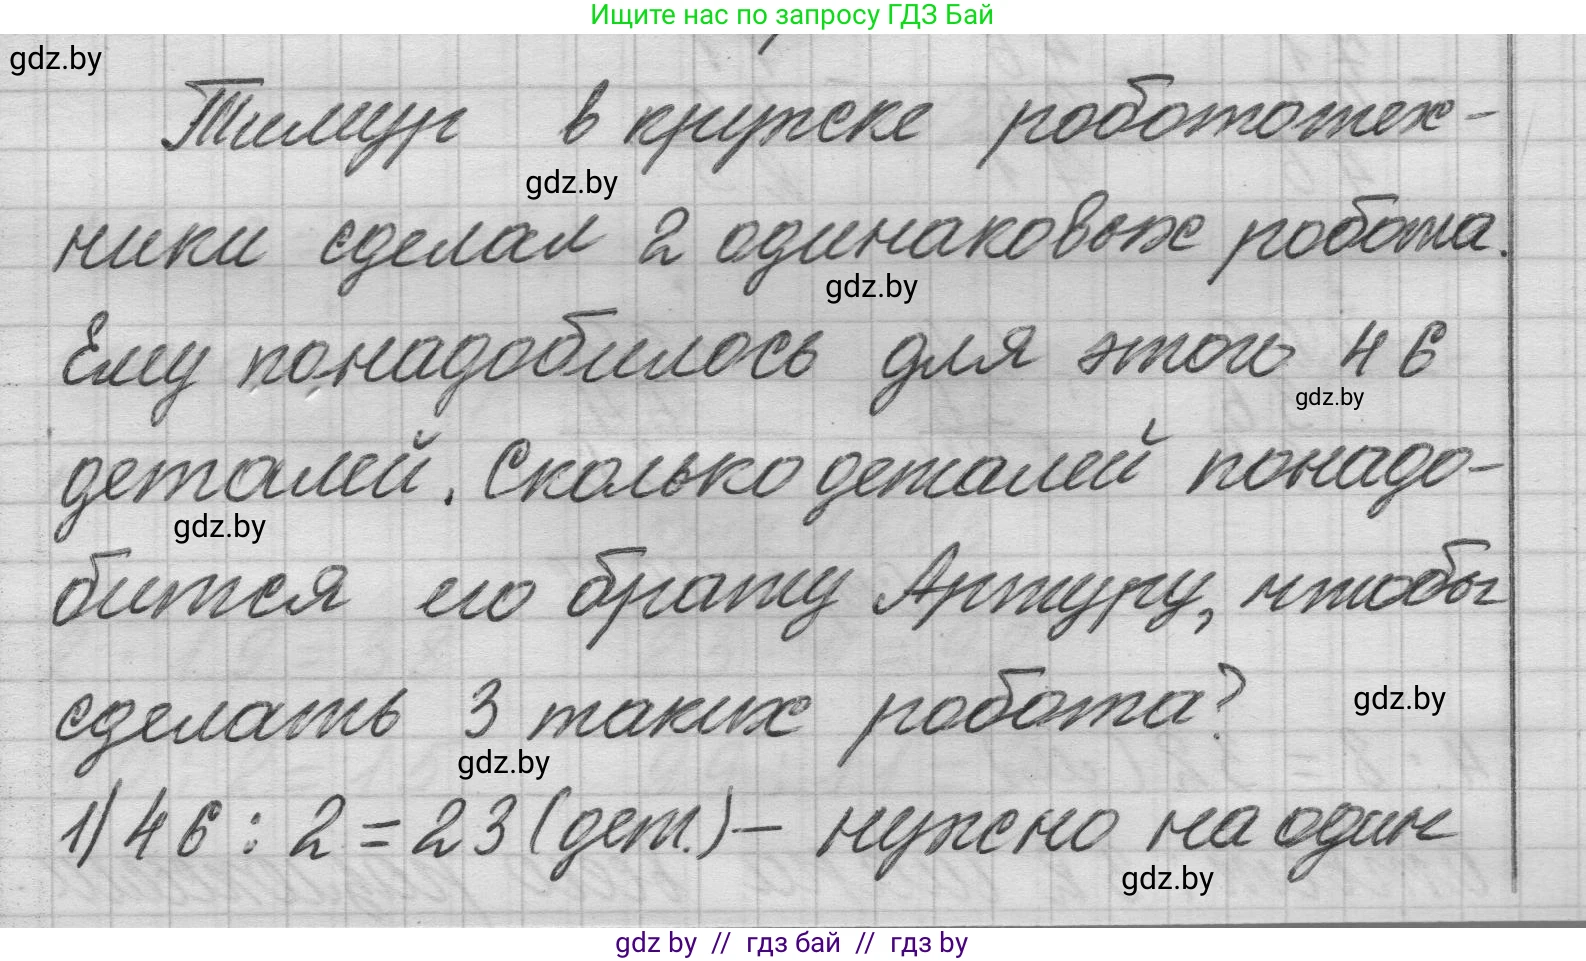 Ищите нас по запросу ГДЗ Бай
gdz.by
Тимур в кружке робототех-
gdz.by
ники сделал 2 одинаковых робота.
gdz.by
Ему понадобилось для этого 46
gdz.by
деталей. Сколько деталей понадо-
gdz.by
бится его брату Артуру, чтобы
сделать 3 таких робота?
gdz.by
gdz.by
1) 46 : 2 = 23 (дет.) – нужно на один
gdz.by
gdz by // гдз бай // gdz by